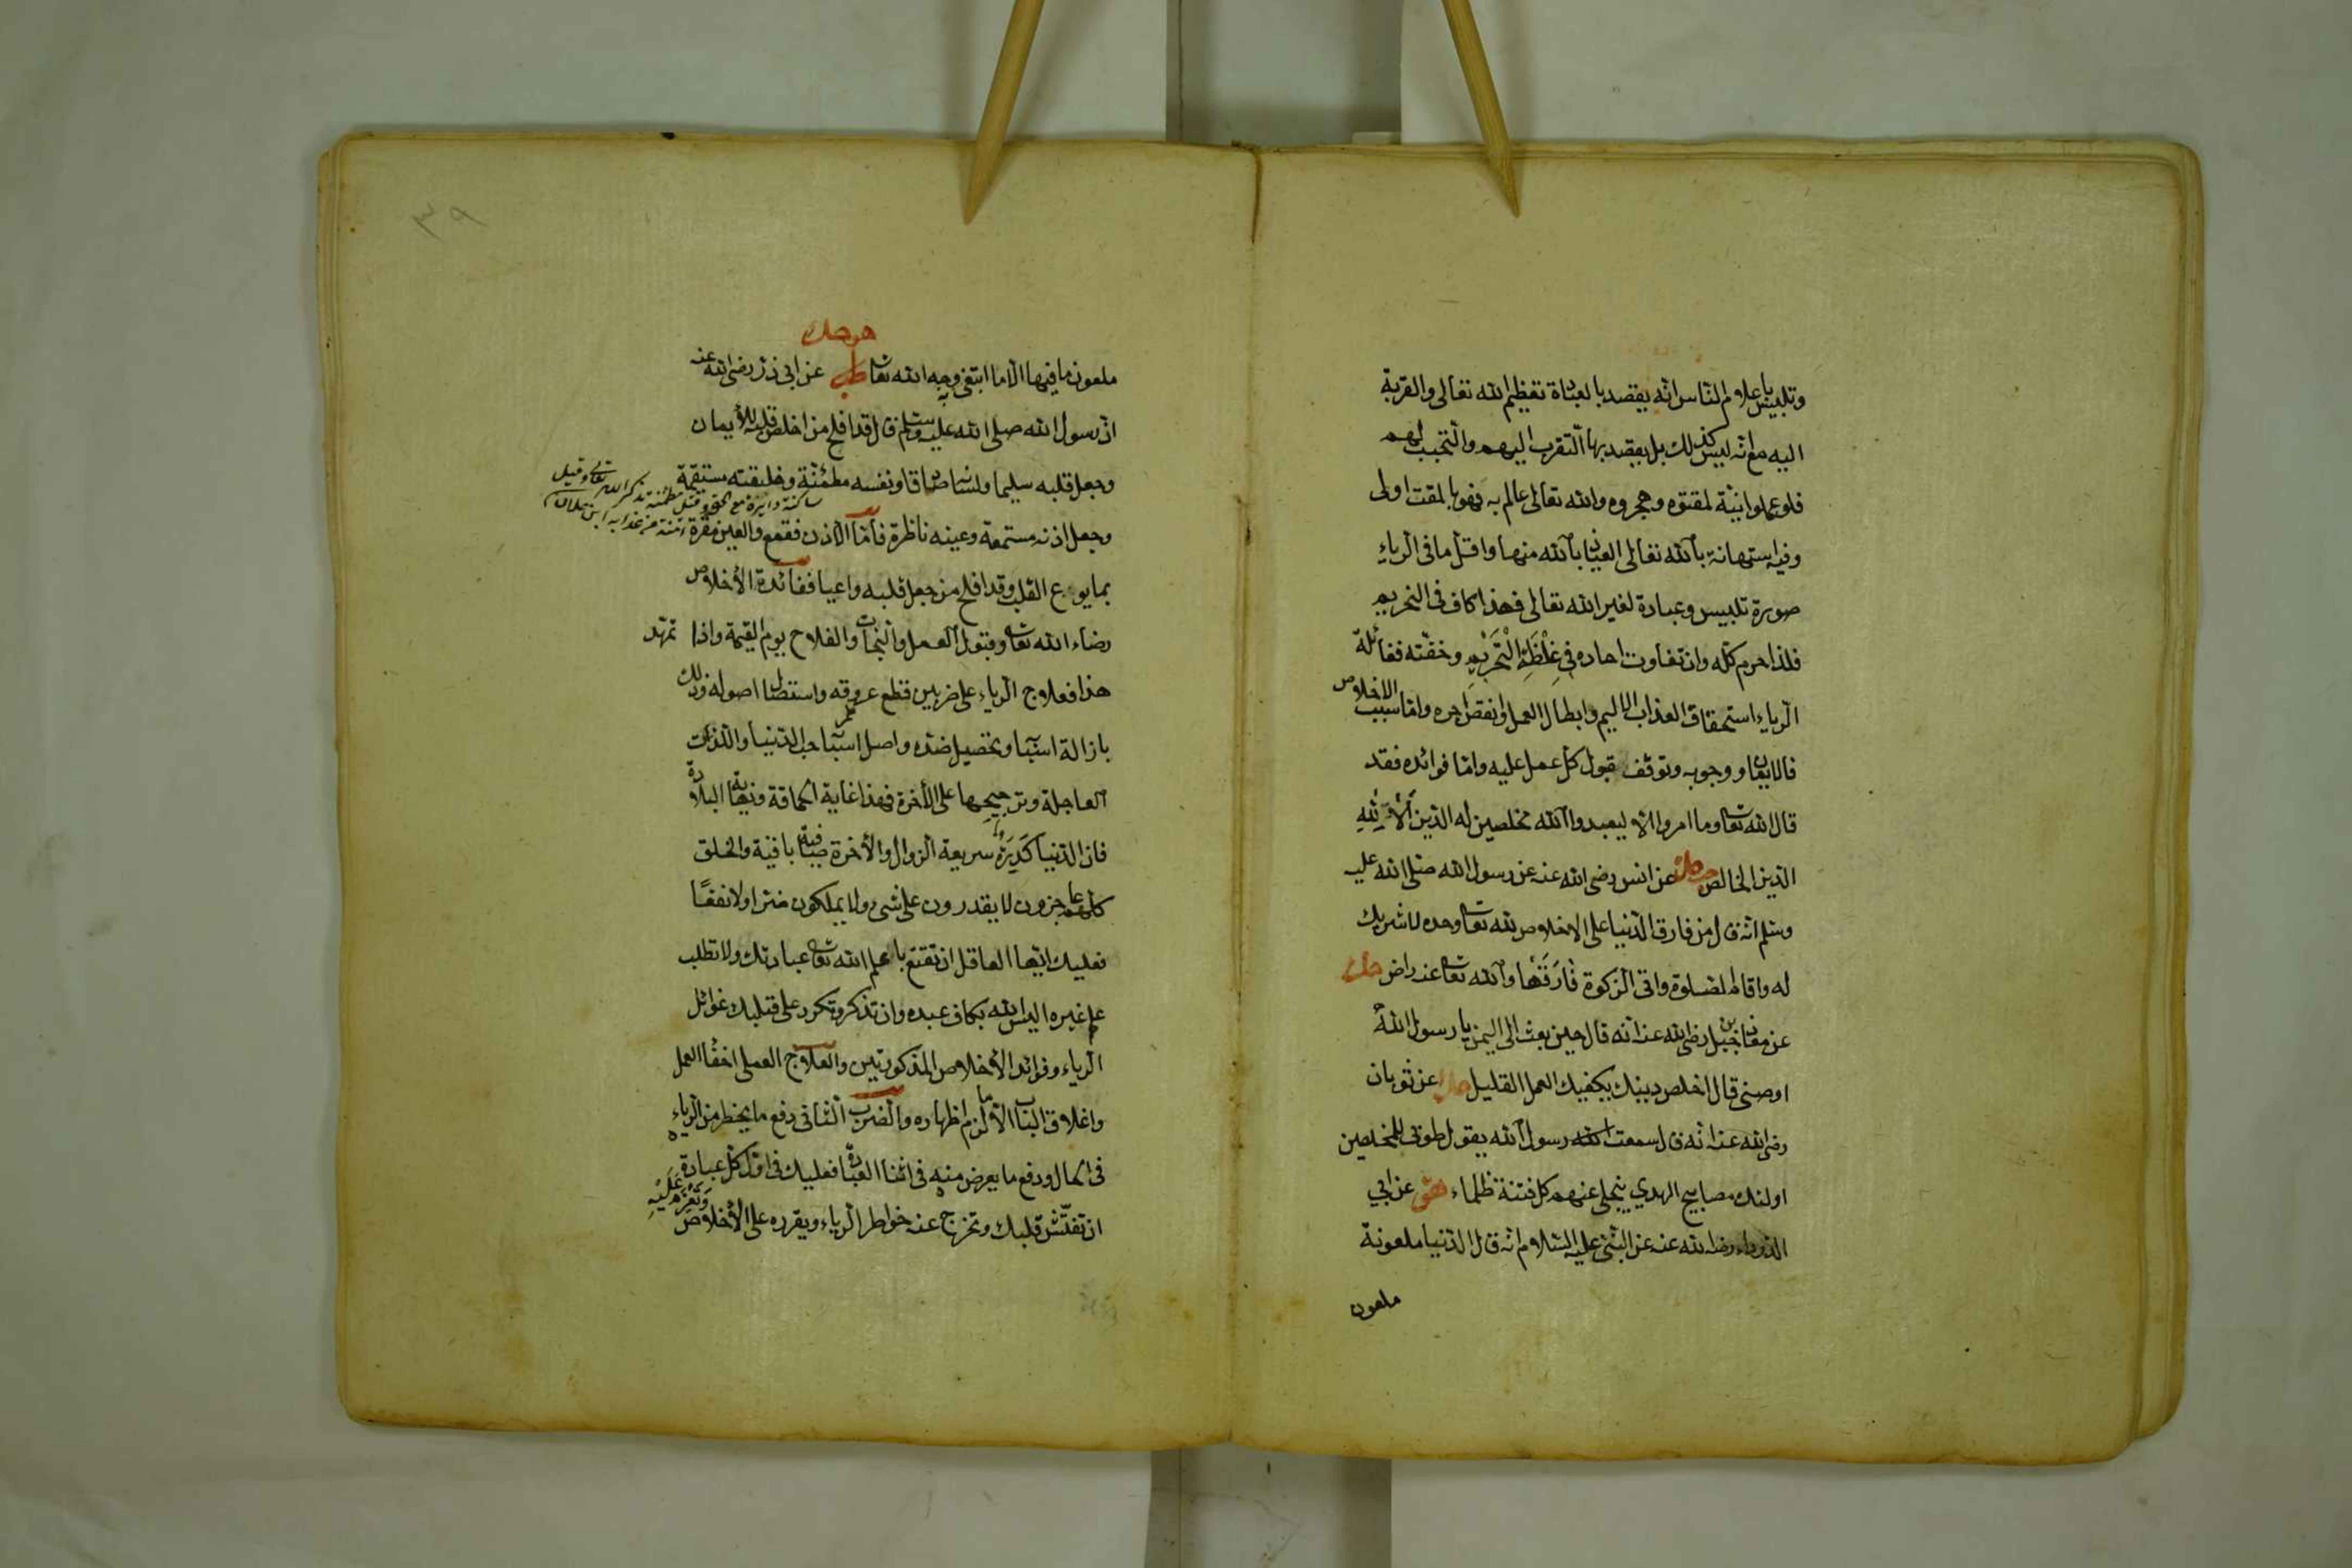 وتلبيس باعلام الناس انه يقصد بالعبادة تعظيم الله تعالى والقربة
اليه مع انه ليس كذلك بل يقصد بها التقرب اليهم والتحبب لهم
فلو علموا نيته لمقتوه وهجروه والله تعالى عالم به فهو بالمقت اولى
وفيه استهانة بالله تعالى العياذ بالله منها واقل ما في الرياء
صورة تلبيس وعبادة لغير الله تعالى فهذا كاف في التحريم
فلذا حرم كله وان تفاوت احاده في غِلْظَةِ الْتَحْرِيمِ وخفته فغائلة
الرياء استحقاق العذاب الاليم وابطال العمل او نقص اجره واما سبب الاخلاص
فالايمان ووجوبه وتوقف قبول كل عمل عليه واما فوائده فقد
قال الله تعالى وما امروا الا ليعبدوا الله مخلصين له الدين ألا لله
الدين الخالص عن انس رضي الله عنه عن رسول الله صلى الله عليه
وسلم انه قال من فارق الدنيا على الاخلاص لله تعالى وحده لا شريك
له واقام الصلوة واتى الزكوة فارقها والله تعالى عنه راض
عن معاذ بن جبل رضي الله عنه انه قال حين بعث الى اليمن يا رسول الله
اوصني قال اخلص دينك يكفيك العمل القليل عن ثوبان
رضي الله عنه انه قال سمعت رسول الله يقول طوبى للمخلصين
اولئك مصابيح الهدي ينجلي عنهم كل فتنة ظلماء هق عن ابي
الدرداء رضي الله عنه عن النبي عليه السلام انه قال الدنيا ملعونة
ملعون
٣٩
ملعون ما فيها الا ما ابتغى به وجه الله تعالى عن ابي ذر رضي الله عنه
ان رسول الله صلى الله عليه وسلم قال قد افلح من اخلص قلبه للأيمان
وجعل قلبه سليما ولسانه صادقا ونفسه مطمئنة وخليقته مستقيمة
وجعل اذنه مستمعة وعينه ناظرة فأما الاذن فقمع والعين مقرة
بما يوع القلب وقد افلح من جعل قلبه واعيا ففائدة الأخلاص
رضاء الله تعالى وقبول العمل والنجات والفلاح يوم القيمة واذا تمهد
هذا فعلاج الرياء على ضربين قطع عروقه واستئصال اصوله وذلك
بازالة اسبابه وتحصيل ضده واصل اسبابه حب الدنيا واللذات
العاجلة وترجيحها على الأخرة فهذا غاية الحماقة ونهاية البلادة
فان الدنيا كَدِرَة سريعة الزوال والأخرة صافية باقية والخلق
كلهم عاجزون لا يقدرون على شئ ولا يملكون ضرا ولا نفعًا
فعليك ايها العاقل ان تقنع بعلم الله تعالى عبادتك ولا تطلب
علم غيره اليس الله بكاف عبده وان تذكر وتكرر على قلبك غوائل
الرياء وفوائد الأخلاص المذكورتين والعلاج العملي اخفاء العمل
واغلاق الباب الا ما لزم اظهاره والضرب الثاني دفع ما يخطر من الرياء
في الحال ودفع ما يعرض منه في اثناء العبادة فعليك في اول كل عبادة
ان تفتّش قلبك وتخرج عنه خواطر الرياء ويقرره على الأخلاص